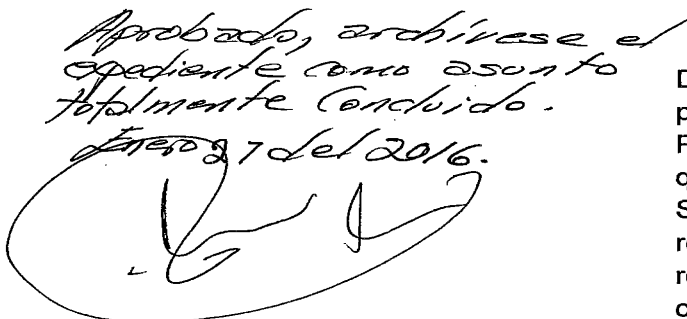 Aprobado, archívese el
expediente como asunto
totalmente Concluido.
Enero 27 del 2016.